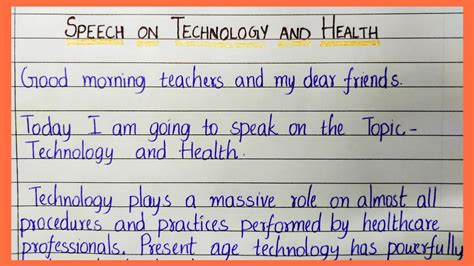 Speech on Technology and Health
Good morning teachers and my dear friends.
Today I am going to speak on the Topic-
Technology and Health.
Technology plays a massive role on almost all
procedures and practices performed by healthcare
professionals. Present age technology has powerfully